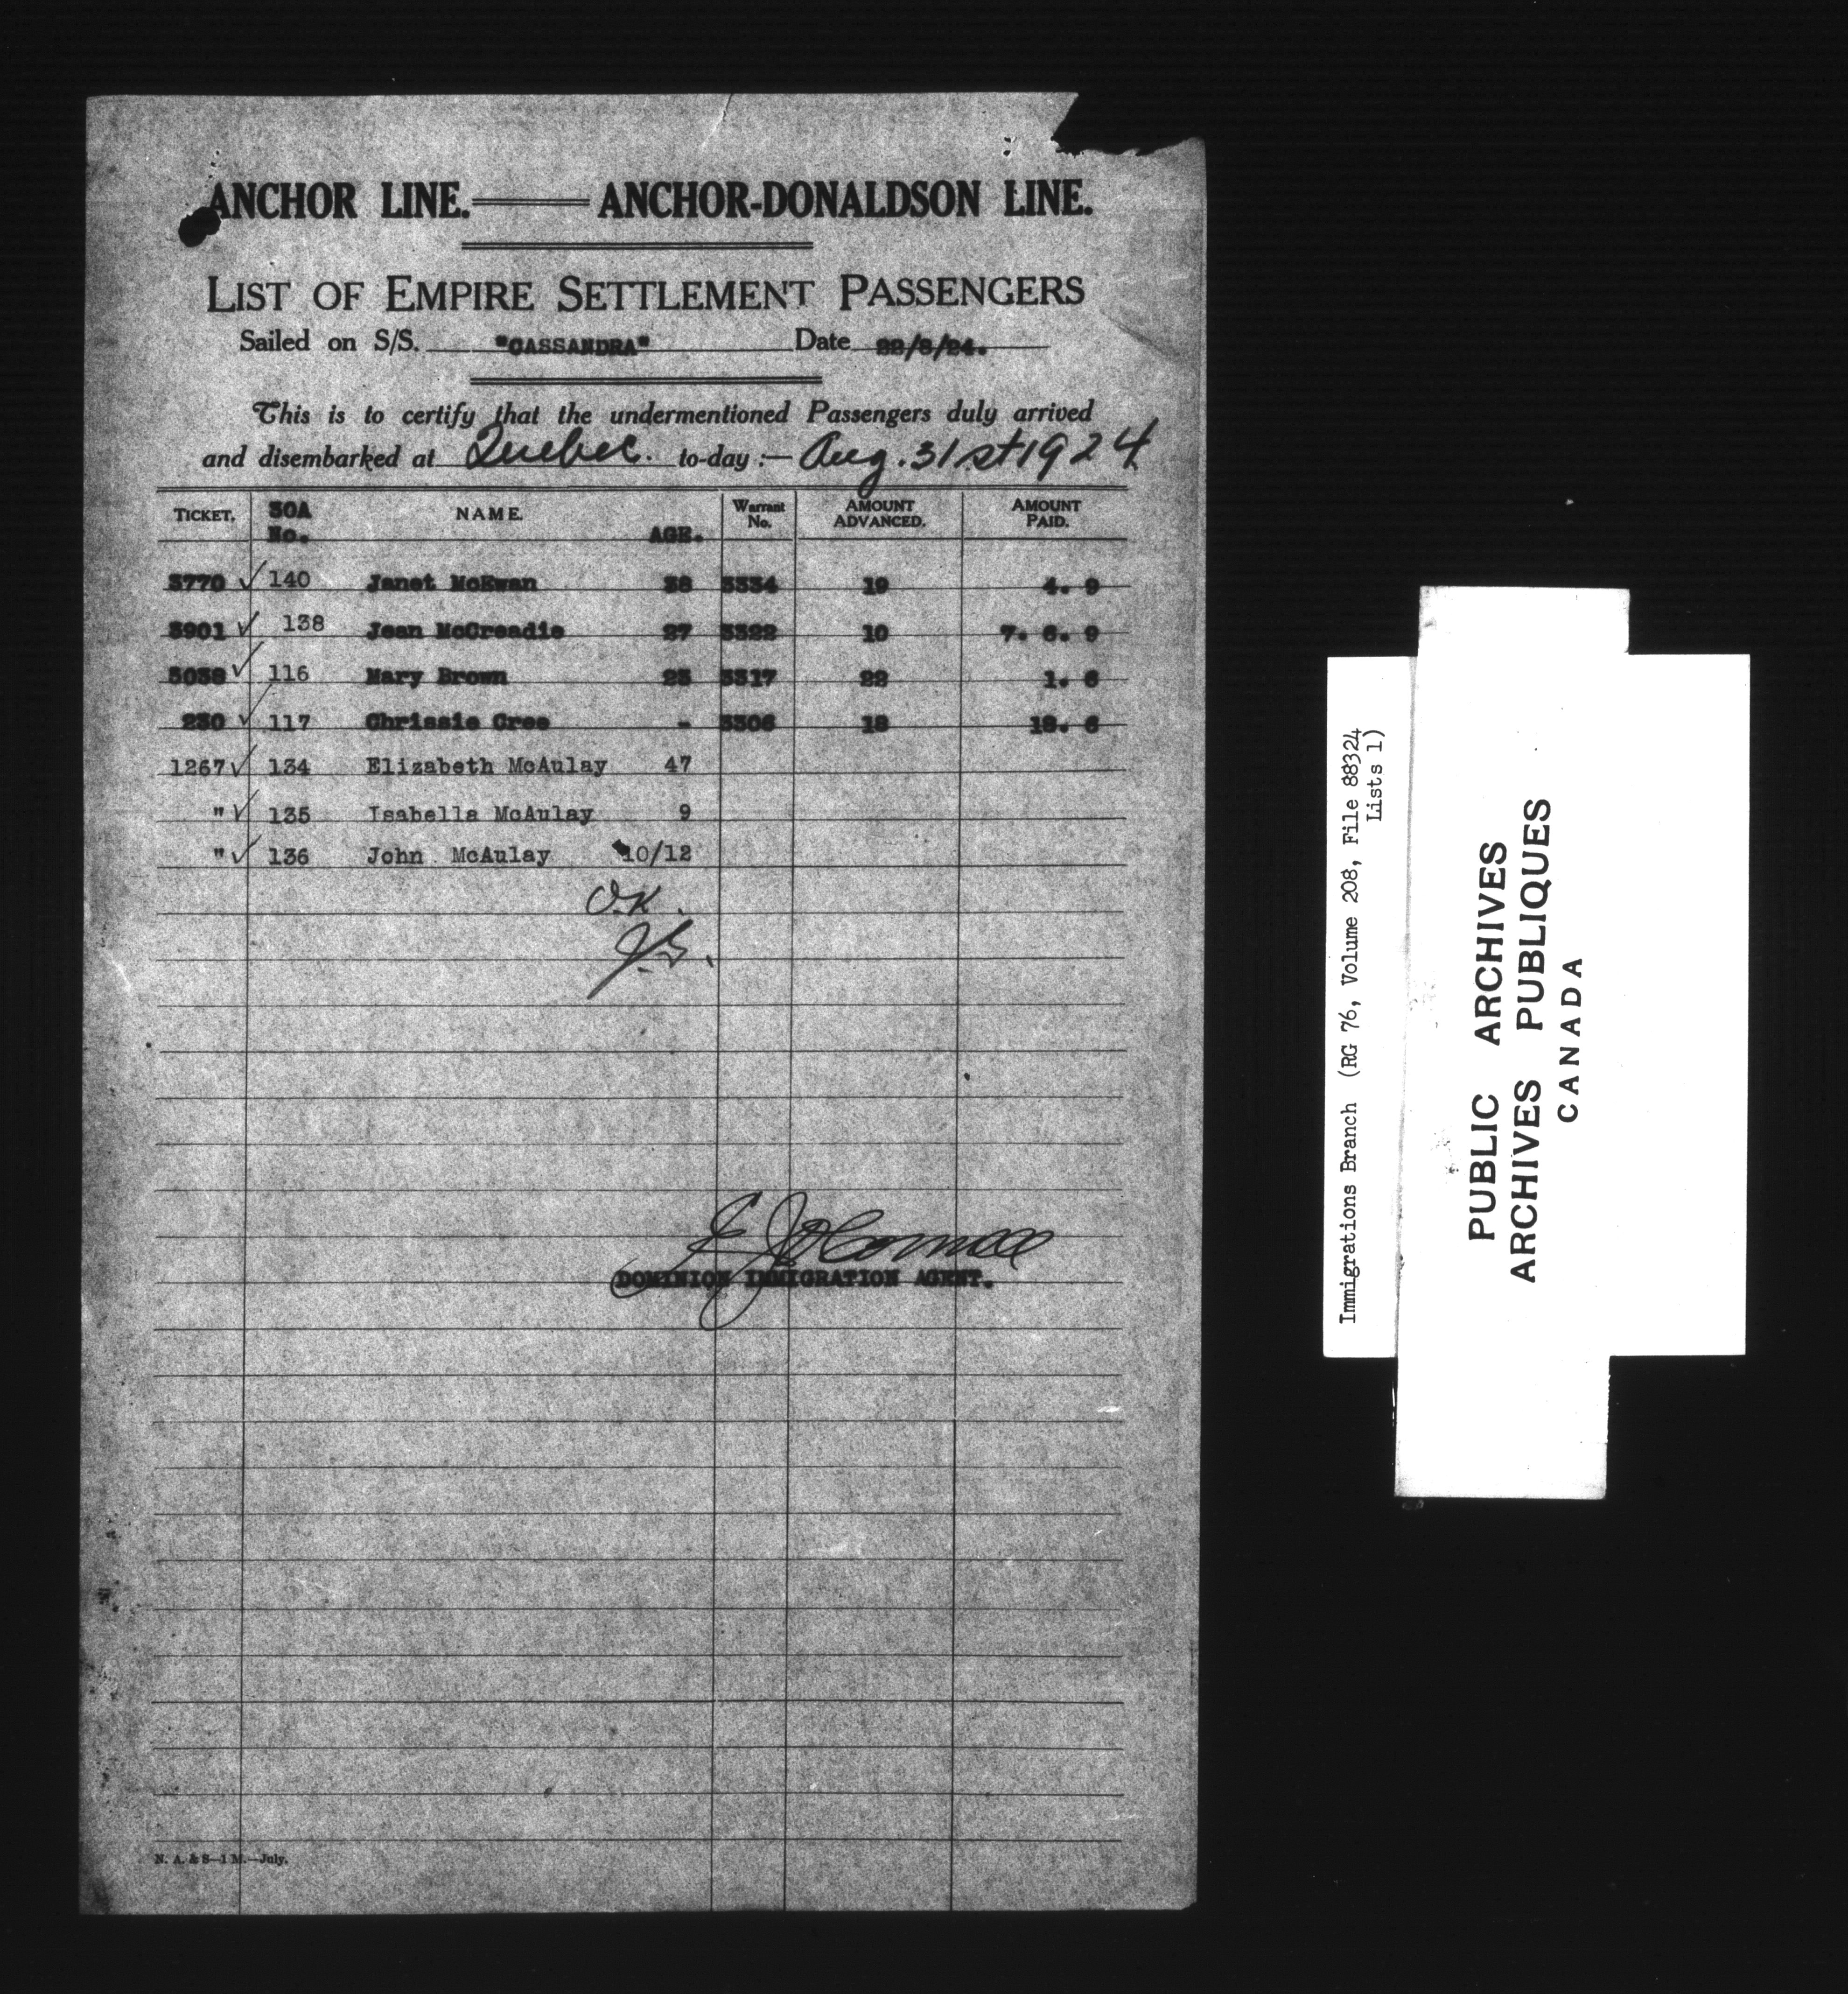 ANCHOR LINE. ANCHOR-DONALDSON LINE.
LIST OF EMPIRE SETTLEMENT PASSENGERS
Sailed on S/S. "CASSANDRA" Date 22/8/24.
This is to certify that the undermentioned Passengers duly arrived
and disembarked at Quebec. to-day :— Aug. 31st 1924
TICKET. 30A No. NAME. AGE. Warrant No. AMOUNT ADVANCED. AMOUNT PAID.
3770 ✓ 140 Janet McEwan 38 3334 19 4. 9
3901 ✓ 138 Jean McCreadie 27 3322 10 7. 6. 9
3038 ✓ 116 Mary Brown 23 3317 22 1. 6
230 ✓ 117 Chrissie Cree - 3306 18 18. 6
1267 ✓ 134 Elizabeth McAulay 47
" ✓ 135 Isabella McAulay 9
" ✓ 136 John McAulay 10/12
O.K.
DOMINION IMMIGRATION AGENT.
N. A. & S—1 M.—July.
Immigrations Branch (RG 76, Volume 208, File 88324
Lists 1)
PUBLIC ARCHIVES
ARCHIVES PUBLIQUES
CANADA